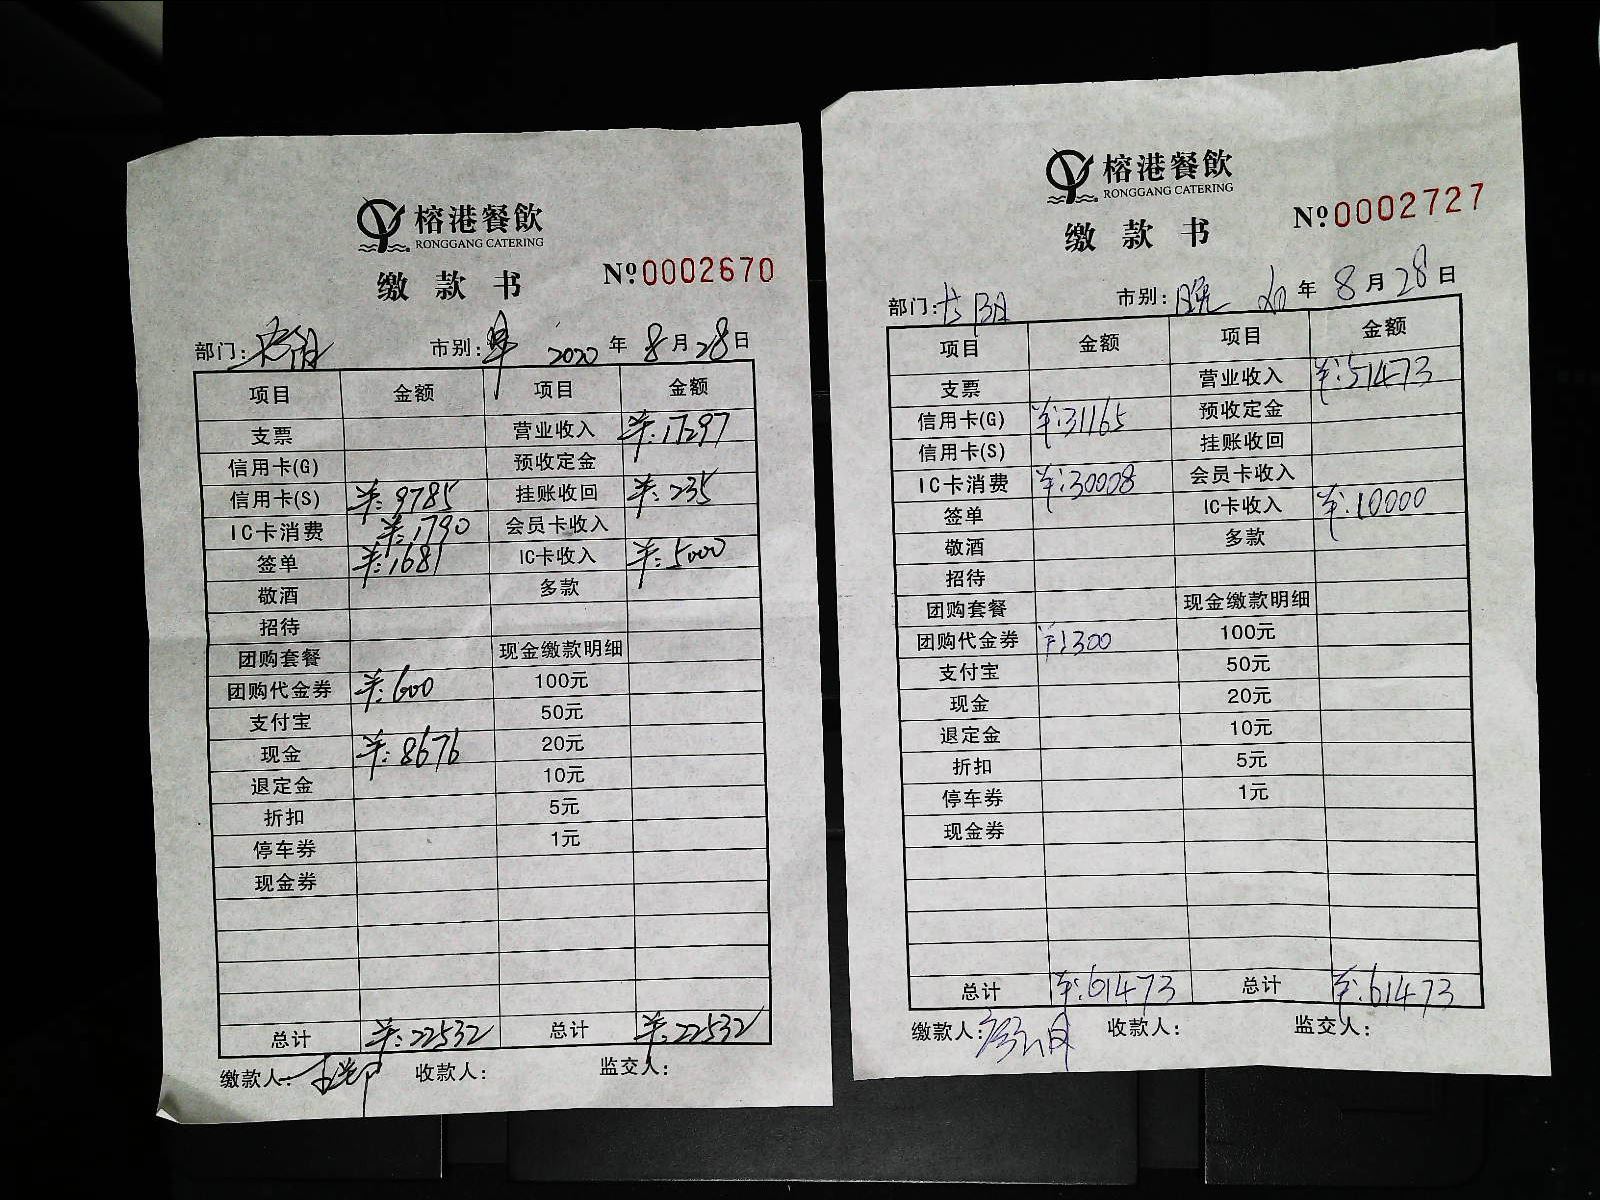 榕港餐飲
RONGGANG CATERING
缴款书
№0002670
部门: 市别: 早 2020 年 8 月 28 日
项目 金额 项目 金额
支票 营业收入 ¥:17297
信用卡(G) 预收定金
信用卡(S) ¥:9785 挂账收回 ¥:235
IC卡消费 ¥:1790 会员卡收入
签单 ¥:1681 IC卡收入 ¥:5000
敬酒 多款
招待
团购套餐 现金缴款明细
团购代金券 ¥:600 100元
支付宝 50元
现金 ¥:8676 20元
退定金 10元
折扣 5元
停车券 1元
现金券
总计 ¥:22532 总计 ¥:22532
缴款人: 收款人: 监交人:
榕港餐飲
RONGGANG CATERING
缴款书
№0002727
部门: 市别: 晚 20 年 8 月 28 日
项目 金额 项目 金额
支票 营业收入 ¥:51473
信用卡(G) ¥:31165 预收定金
信用卡(S) 挂账收回
IC卡消费 ¥:30008 会员卡收入
签单 IC卡收入 ¥:10000
敬酒 多款
招待
团购套餐 现金缴款明细
团购代金券 ¥:300 100元
支付宝 50元
现金 20元
退定金 10元
折扣 5元
停车券 1元
现金券
总计 ¥:61473 总计 ¥:61473
缴款人: 收款人: 监交人: